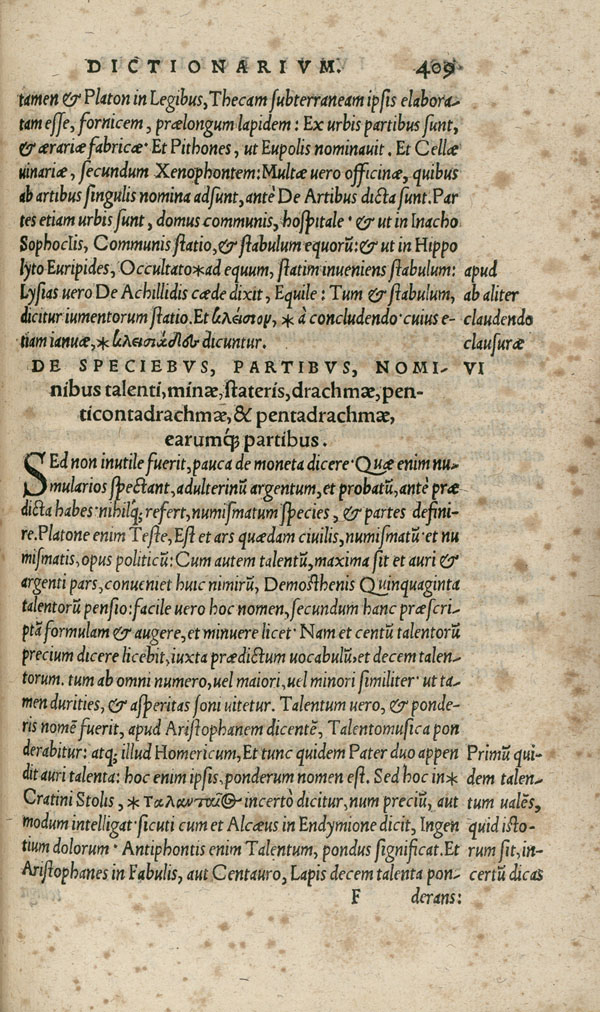 DICTIONARIVM. 409
tamen & Platon in Legibus, Thecam subterraneam ipsis elabora-
tam esse, fornicem, prælongum lapidem: Ex urbis partibus sunt,
& ærariæ fabricæ· Et Pithones, ut Eupolis nominauit. Et Cellæ
uinariæ, secundum Xenophontem: Multæ uero officinæ, quibus
ab artibus singulis nomina adsunt, antè De Artibus dicta sunt. Par
tes etiam urbis sunt, domus communis, hospitale· & ut in Inacho
Sophoclis, Communis statio, & stabulum equorū: & ut in Hippo
lyto Euripides, Occultato*ad equum, statim inueniens stabulum: apud
Lysias uero De Achillidis cæde dixit, Equile: Tum & stabulum, ab aliter
dicitur iumentorum statio. Et κλεισιον, * à concludendo· cuius e- claudendo
tiam ianuæ, * κλεισιάδες dicuntur. clausuræ
DE SPECIEBVS, PARTIBVS, NOMI- VI
nibus talenti, minæ, stateris, drachmæ, pen-
ticontadrachmæ, & pentadrachmæ,
earumq́; partibus.
SEd non inutile fuerit, pauca de moneta dicere· Quæ enim nu-
mularios spectant, adulterinū argentum, et probatū, antè præ
dicta habes· nihilq́; refert, numismatum species, & partes defini-
re. Platone enim Teste, Est et ars quædam ciuilis, numismatū· et nu
mismatis, opus politicū: Cum autem talentū, maxima sit et auri &
argenti pars, conueniet huic nimirū, Demosthenis Quinquaginta
talentorū pensio: facile uero hoc nomen, secundum hanc præscri-
ptā formulam & augere, et minuere licet· Nam et centū talentorū
precium dicere licebit, iuxta prædictum uocabulū, et decem talen-
torum. tum ab omni numero, uel maiori, uel minori similiter· ut ta-
men durities, & asperitas soni uitetur. Talentum uero, & ponde-
ris nomē fuerit, apud Aristophanem dicentē, Talentomusica pon
derabitur: atq; illud Homericum, Et tunc quidem Pater duo appen Primū qui-
dit auri talenta: hoc enim ipsis, ponderum nomen est. Sed hoc in* dem talen-
Cratini Stolis, * ταλανταῖος incertò dicitur, num preciū, aut tum ualēs,
modum intelligat· sicuti cum et Alcæus in Endymione dicit, Ingen quid isto-
tium dolorum· Antiphontis enim Talentum, pondus significat. Et rum sit, in-
Aristophanes in Fabulis, aut Centauro, Lapis decem talenta pon- certū dicas
F derans: